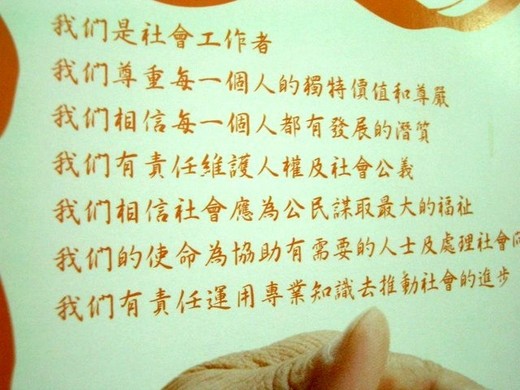 我们是社會工作者
我们尊重每一個人的獨特價值和尊嚴
我们相信每一個人都有發展的潛質
我们有責任維護人權及社會公義
我们相信社會應為公民謀取最大的福祉
我们的使命為協助有需要的人士及處理社會問
我们有責任運用專業知識去推動社會的進步